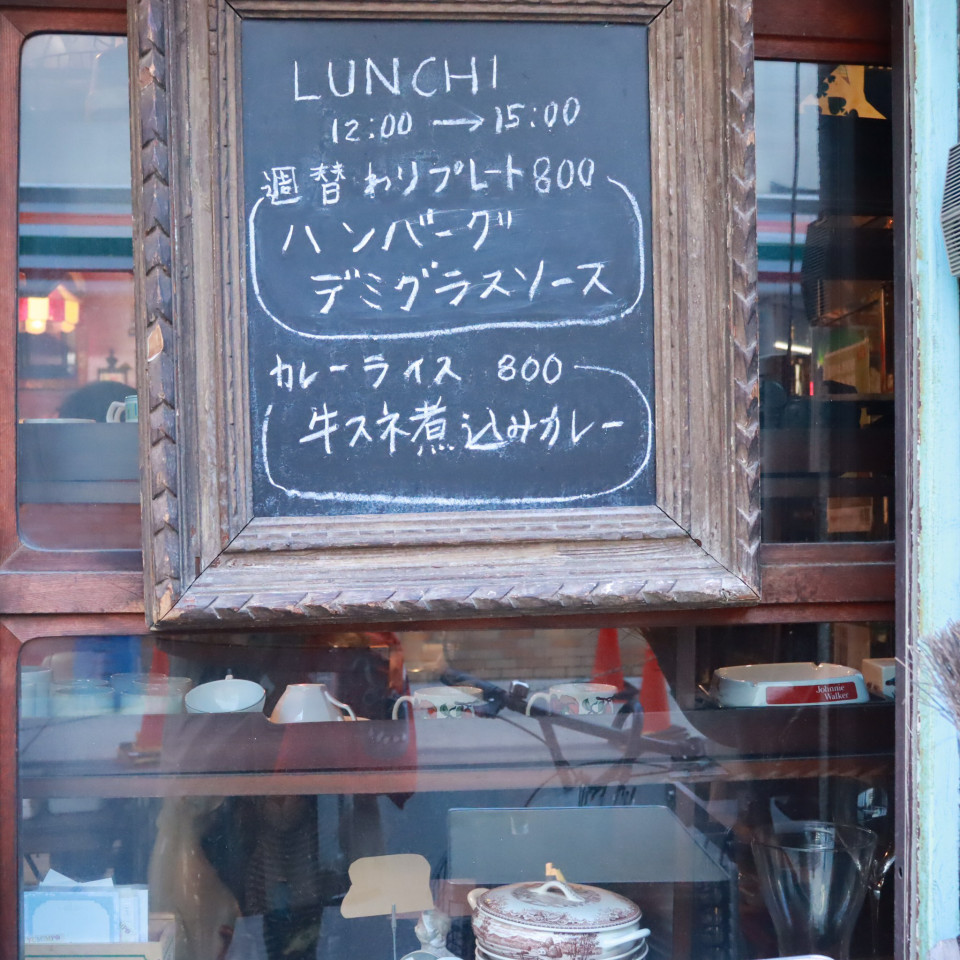 LUNCHI
12:00 → 15:00
週替わりプレート800
ハンバーグ
デミグラスソース
カレーライス 800
牛スネ煮込みカレー
Johnnie
Walker